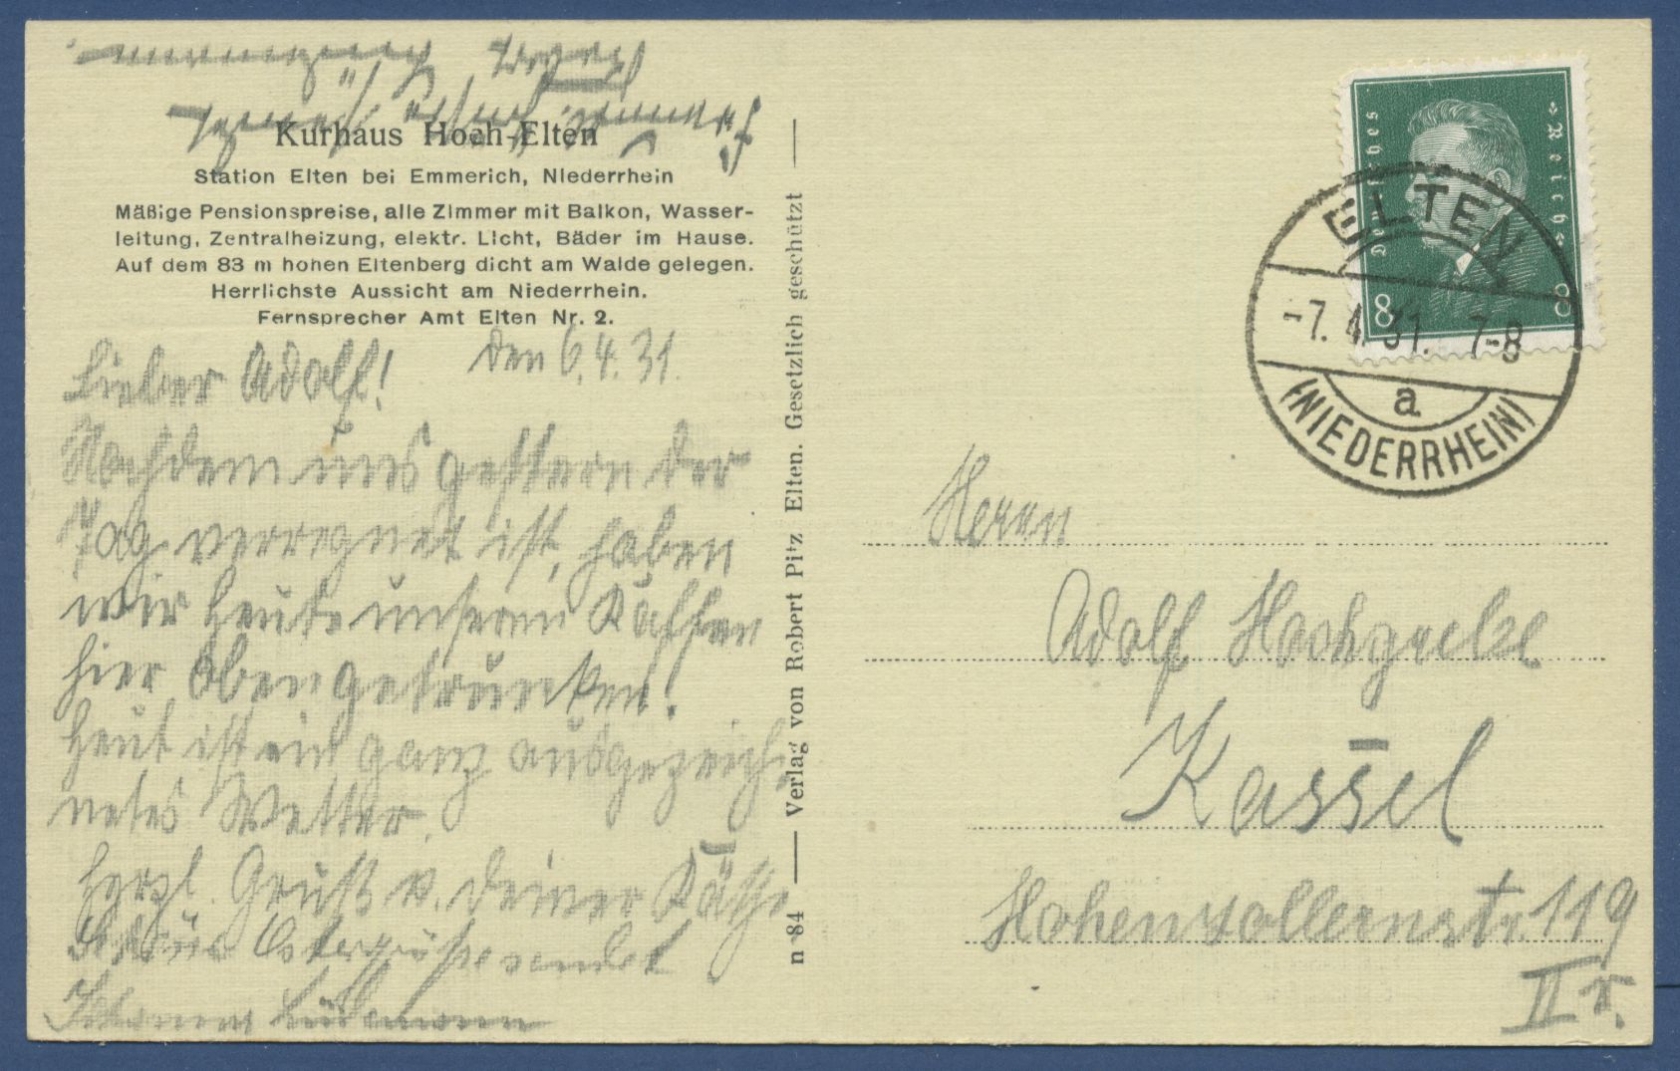 Kurhaus Hoch-Elten
Station Elten bei Emmerich, Niederrhein
Mäßige Pensionspreise, alle Zimmer mit Balkon, Wasser-
leitung, Zentralheizung, elektr. Licht, Bäder im Hause.
Auf dem 83 m hohen Eltenberg dicht am Walde gelegen.
Herrlichste Aussicht am Niederrhein.
Fernsprecher Amt Elten Nr. 2.
den 6.4.31.
Lieber Adolf!
Nachdem uns gestern der
Tag verregnet ist, haben
wir heute unseren Kaffee
hier oben getrunken!
Heut ist ein ganz ausgezeich-
netes Wetter.
Herzl. Gruß v. Deiner Käthe
Ostergrüße sendet
Johanna
n 84 — Verlag von Robert Pitz Elten. Gesetzlich geschützt —
Deutsches Reich
8 8
ELTEN
-7.4.31. 7-8
a
(NIEDERRHEIN)
Herrn
Adolf
Kassel
Hohenzollernstr. 119
II r.